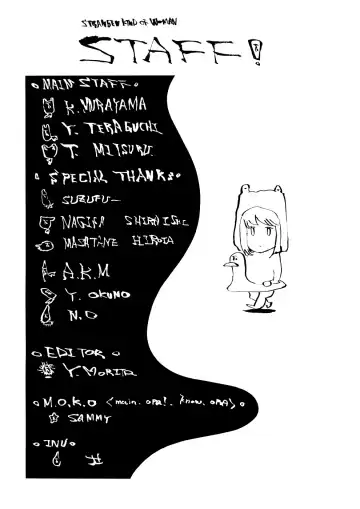 STRANGER KIND OF WOMAN
STAFF!
MAIN STAFF
K. MURAYAMA
Y. TERAGUCHI
T. MITSURU
SPECIAL THANKS
SUZUFU—
NAGISA SHIRAISHI
MASATANE HIROTA
A.K.M
Y. OKUNO
N.O
EDITOR
Y. MORITA
M.O.K.O <main. opa!. know. opa>
SAMMY
INU